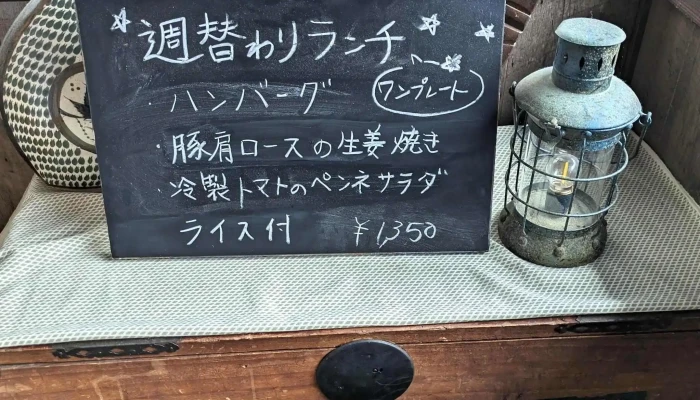 週替わりランチ
・ハンバーグ
ワンプレート
・豚肩ロースの生姜焼き
・冷製トマトのペンネサラダ
ライス付 ¥1,350